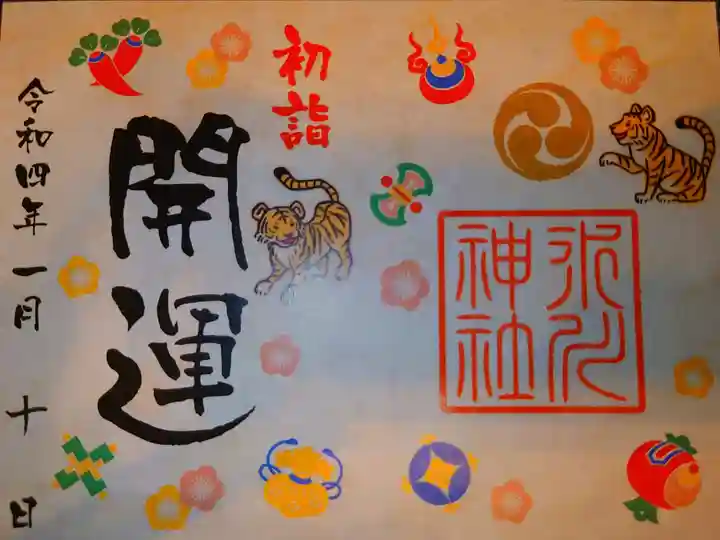 氷川
神社
初詣
開運
令和四年一月十日